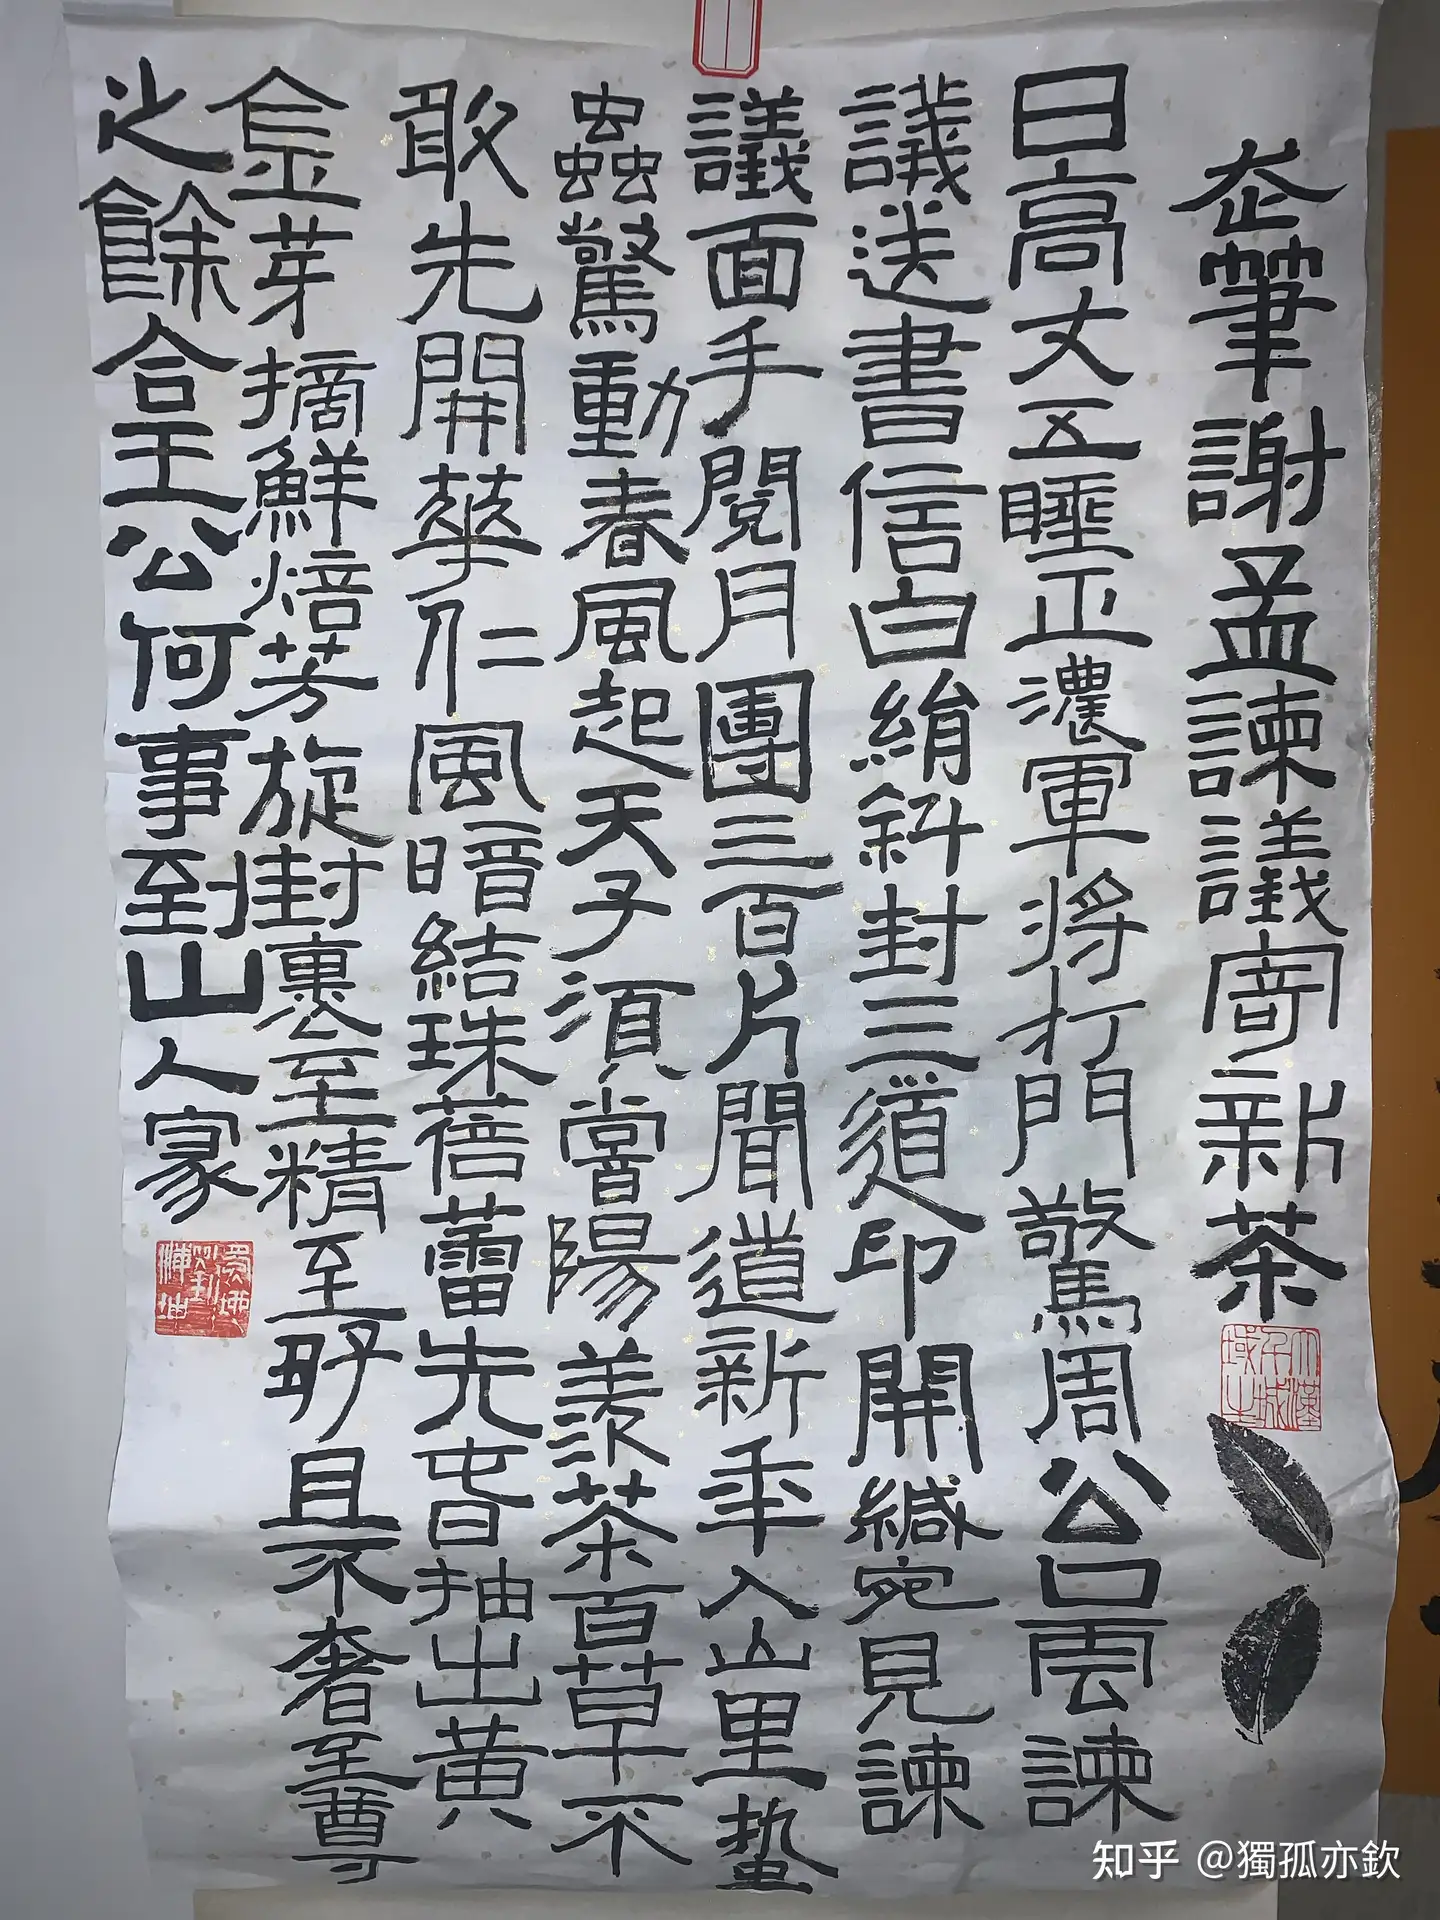 走筆謝孟諫議寄新茶
日高丈五睡正濃軍將打門驚周公口雲諫
議送書信白絹斜封三道印開緘宛見諫
議面手閱月團三百片聞道新年入山里蟄
蟲驚動春風起天子須嘗陽羨茶百草不
敢先開華仁風暗結珠蓓蕾先春抽出黃
金芽摘鮮焙芳旋封裹至精至好且不奢至尊
之餘合王公何事到山人家
知乎 @獨孤亦欽